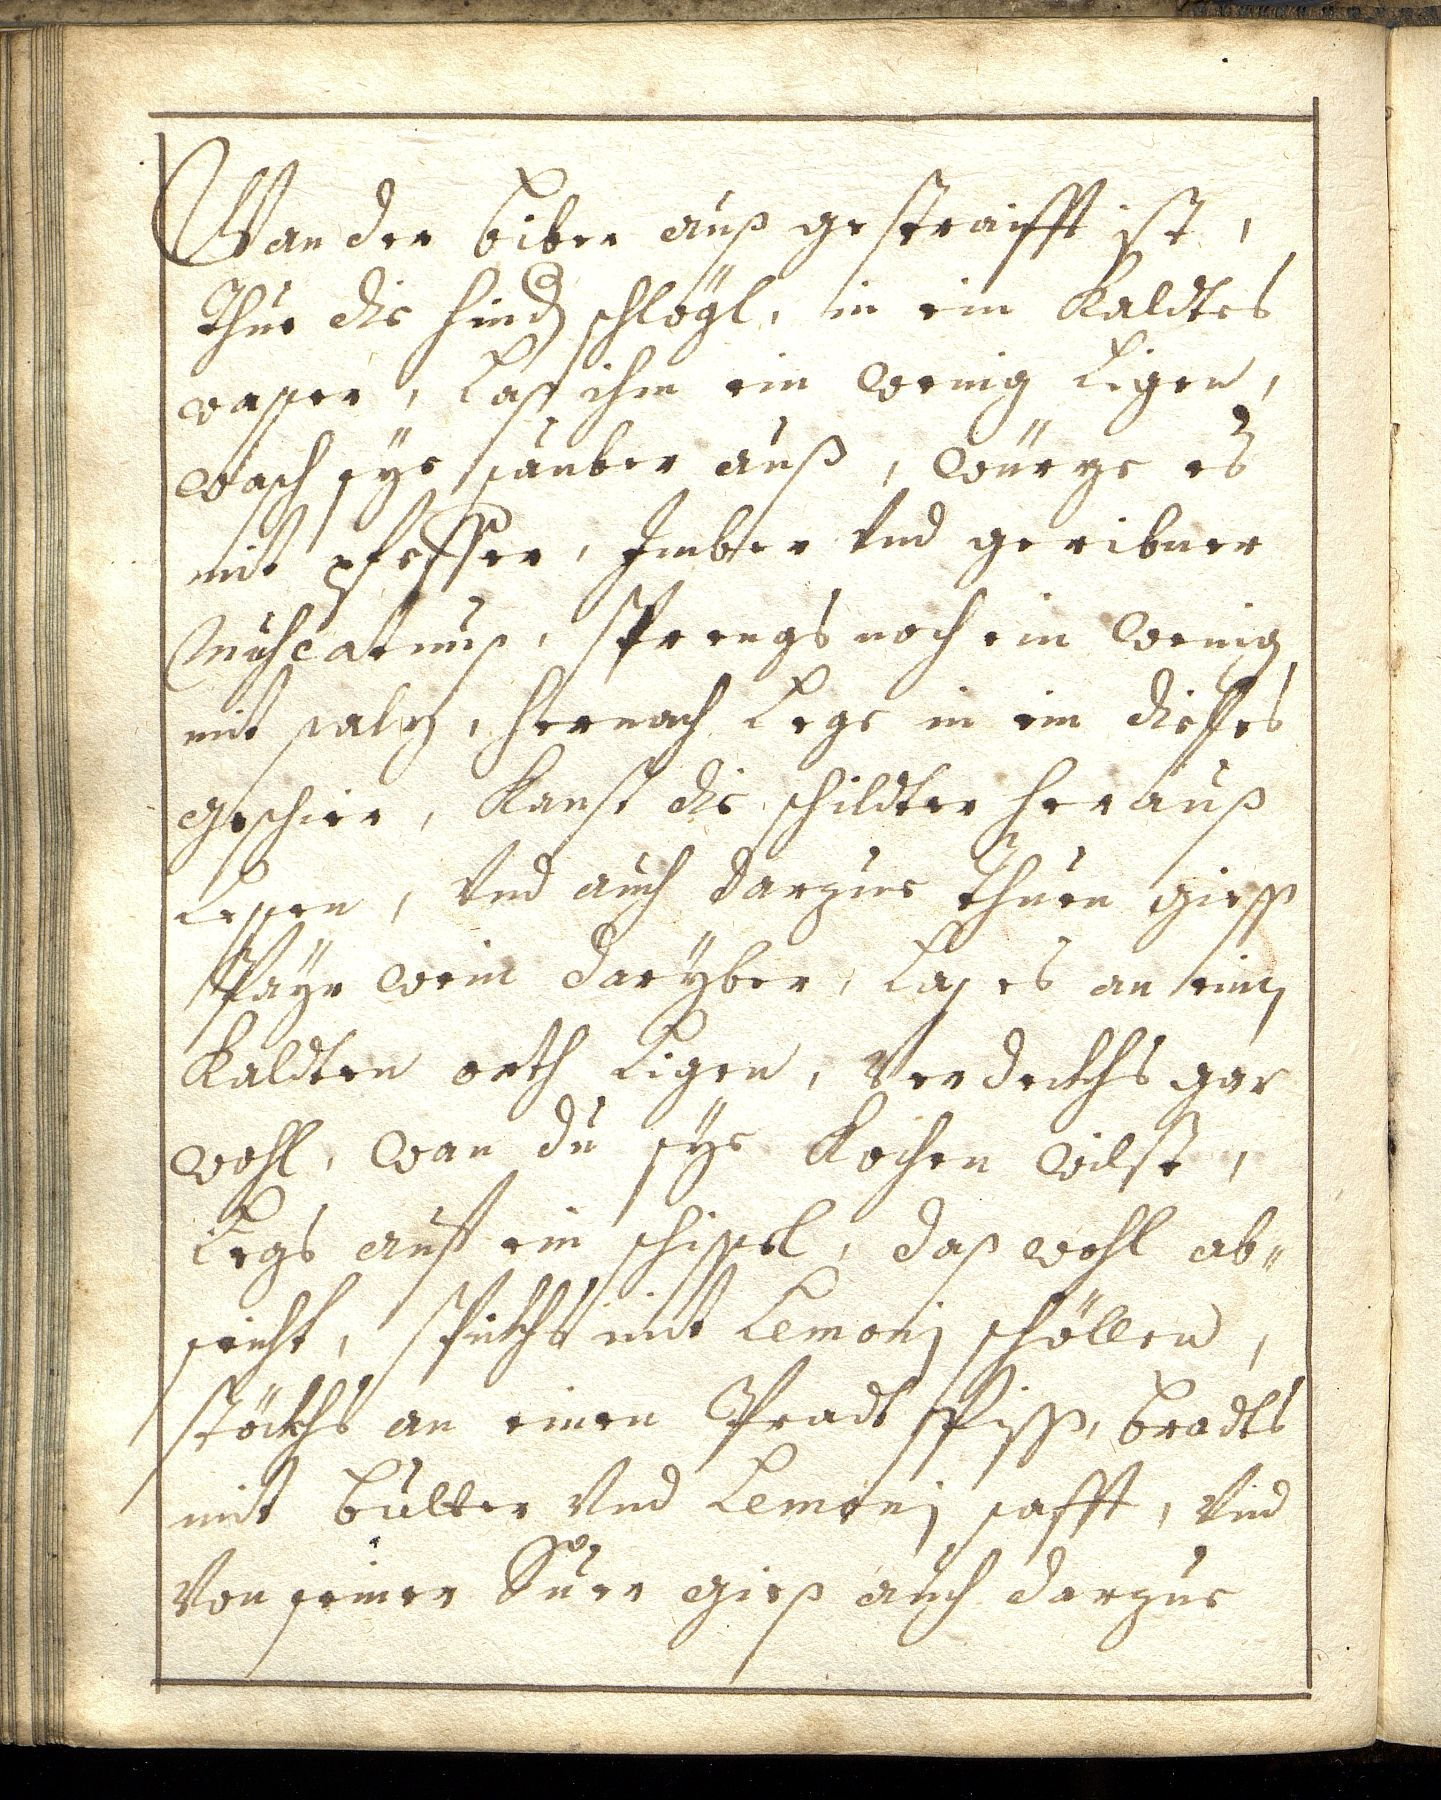 Wan der biber auß gestraifft ist,
Thue die hind schlögl, in ein Kaldtes
wasser, Laß ihm ein wenig Ligen,
wasch sÿe sauber auß, würze es
mit pfeffer, Imber Vnd geribner
Muscatnus, Sprengs noch ein wenig
mit salz, hernach Legs in ein dieffes
geschier, Kanst die schildter herauß
Lessen, Vnd auch darzue Thuen giess
Payr wein darÿber, Las es an einē
Kaldten orth Ligen, Verdeckhs gar
wohl, wan du sÿe Kochen wilst,
Legs auf ein schissel, das wohl ab„
seicht, Spickhs mit Lemonj schöllen,
stöckhs an einen Pradt spiss, bradts
mit butter Vnd Lemonj safft, Vnd
Von seiner Suer gieß auch darzue